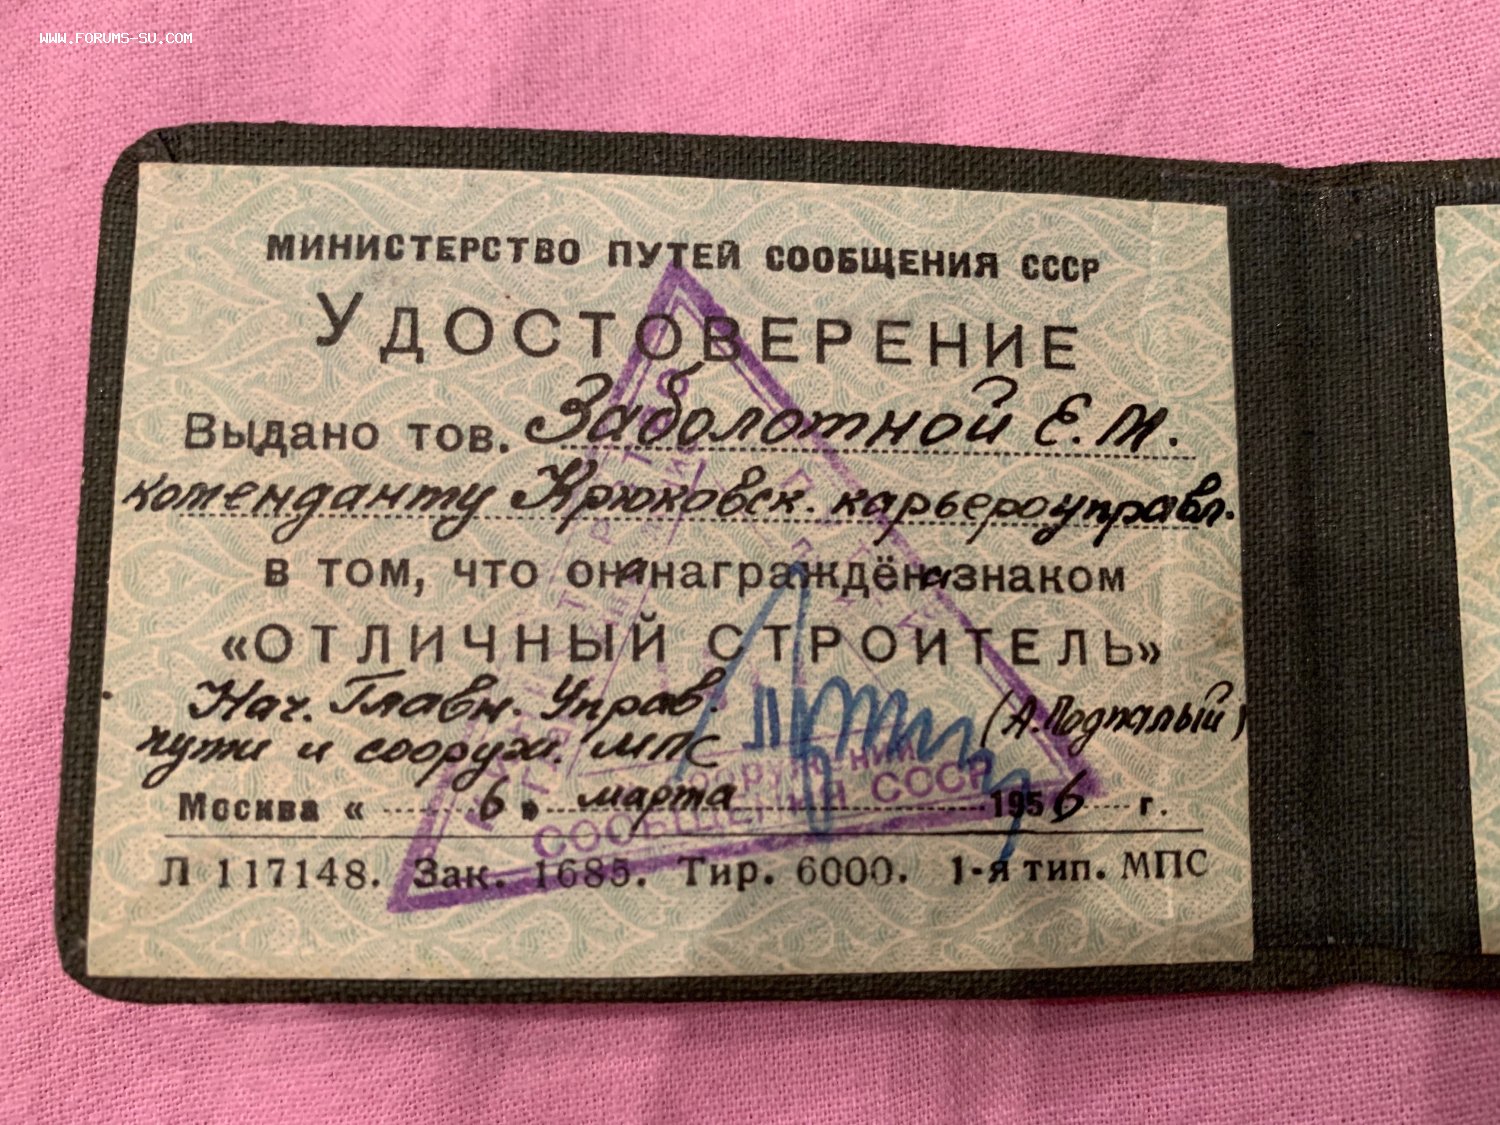 WWW.FORUMS-SU.COM
МИНИСТЕРСТВО ПУТЕЙ СООБЩЕНИЯ СССР
УДОСТОВЕРЕНИЕ
Выдано тов. Заболотной Е.М.
коменданту Крюковск. карьероуправл.
в том, что она награждёна знаком
«ОТЛИЧНЫЙ СТРОИТЕЛЬ»
Нач. Главн. Управ.
пути и сооруж. МПС (А. Подпалый)
Москва « 6 » марта 1956 г.
СООБЩЕНИЯ СССР
Л 117148. Зак. 1685. Тир. 6000. 1-я тип. МПС